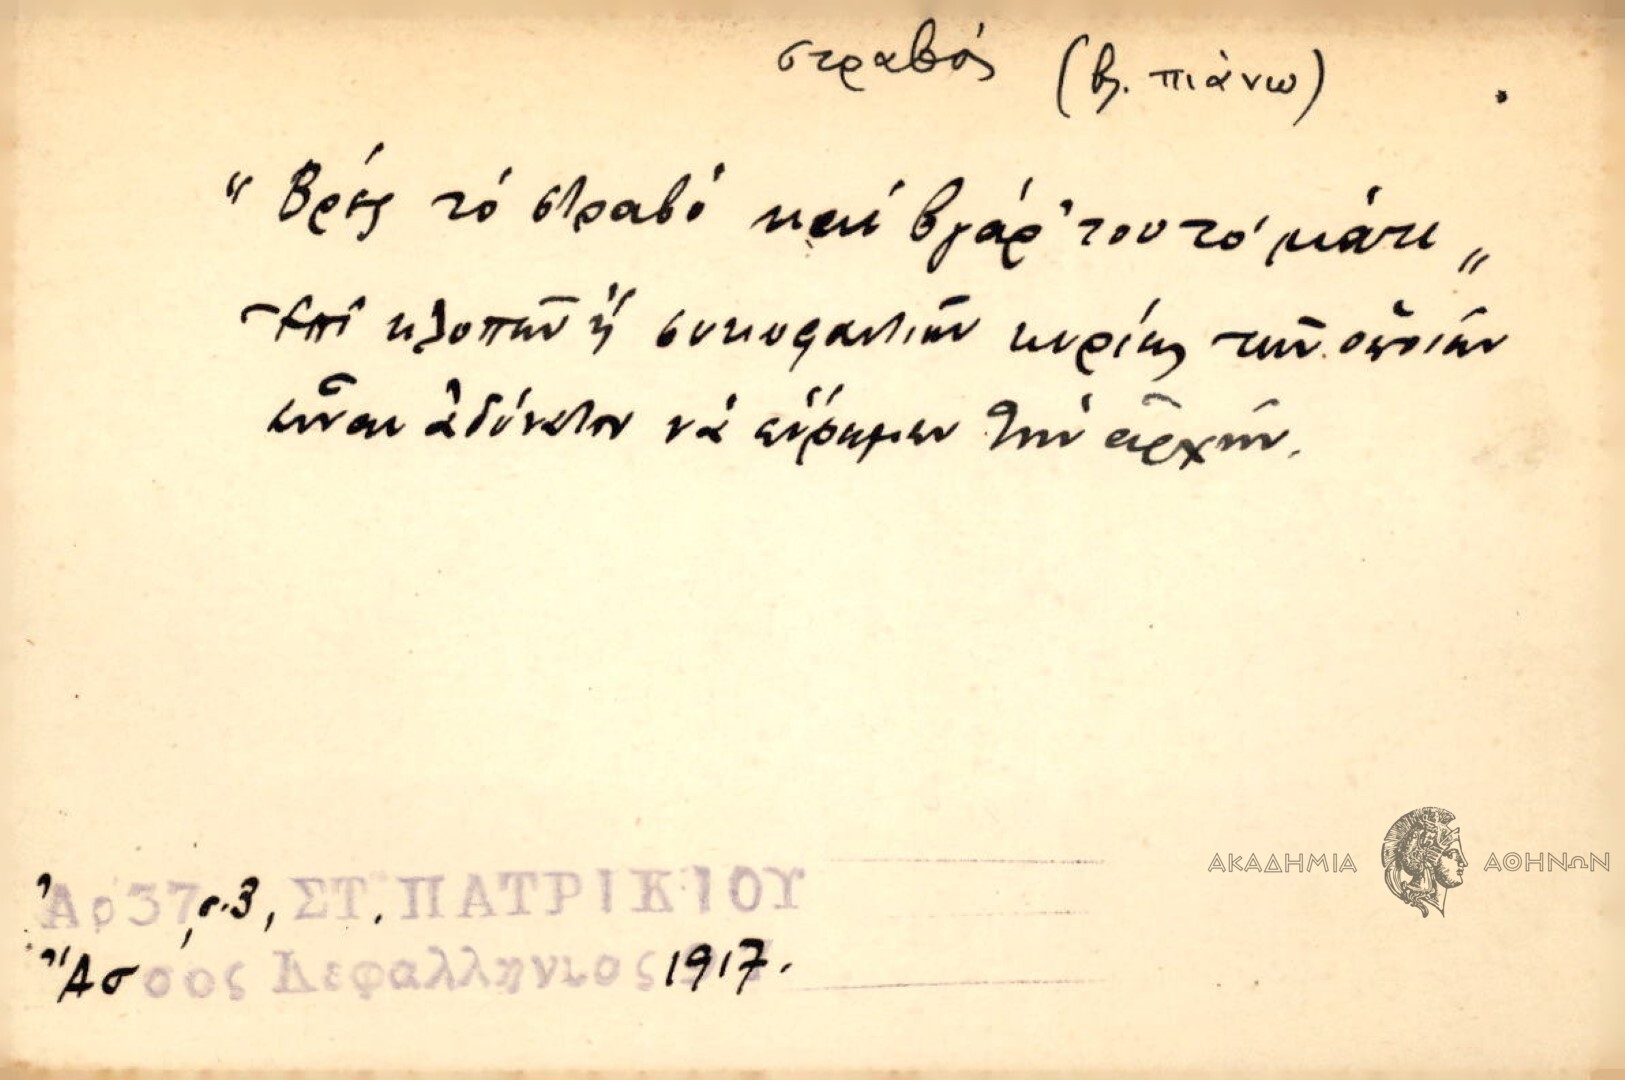 στραβός (βλ. πιάνω)
"Βρές τό στραβό καί βγάρ' του τό μάτι„
Ἐπί κλοπῶν ἤ συκοφαντιῶν κυρίως τῶν ὁποίων
εἶναι ἀδύνατον νά εὕρωμεν τήν ἀρχήν.
Ἀρ 37, σ. 3, ΣΤ. ΠΑΤΡΙΚΙΟΥ
Ἄσσος Κεφαλληνίας 1917.
ΑΚΑΔΗΜΙΑ ΑΘΗΝΩΝ